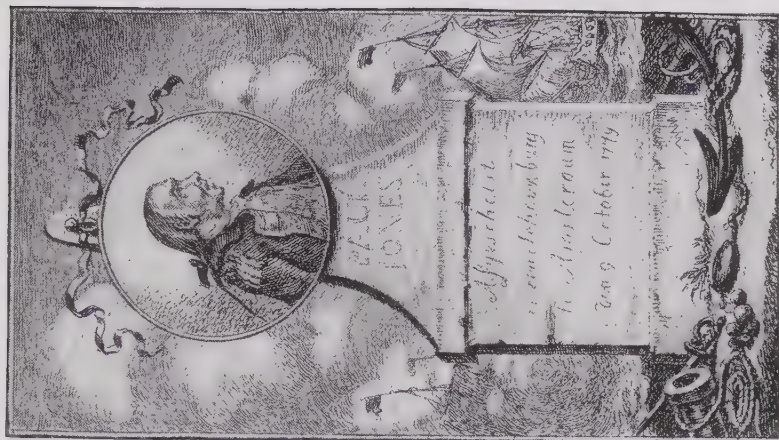 PAUL
JONES
Afgeschetst
in een Schouwburg
te Amsteroam
den 9 October 1779